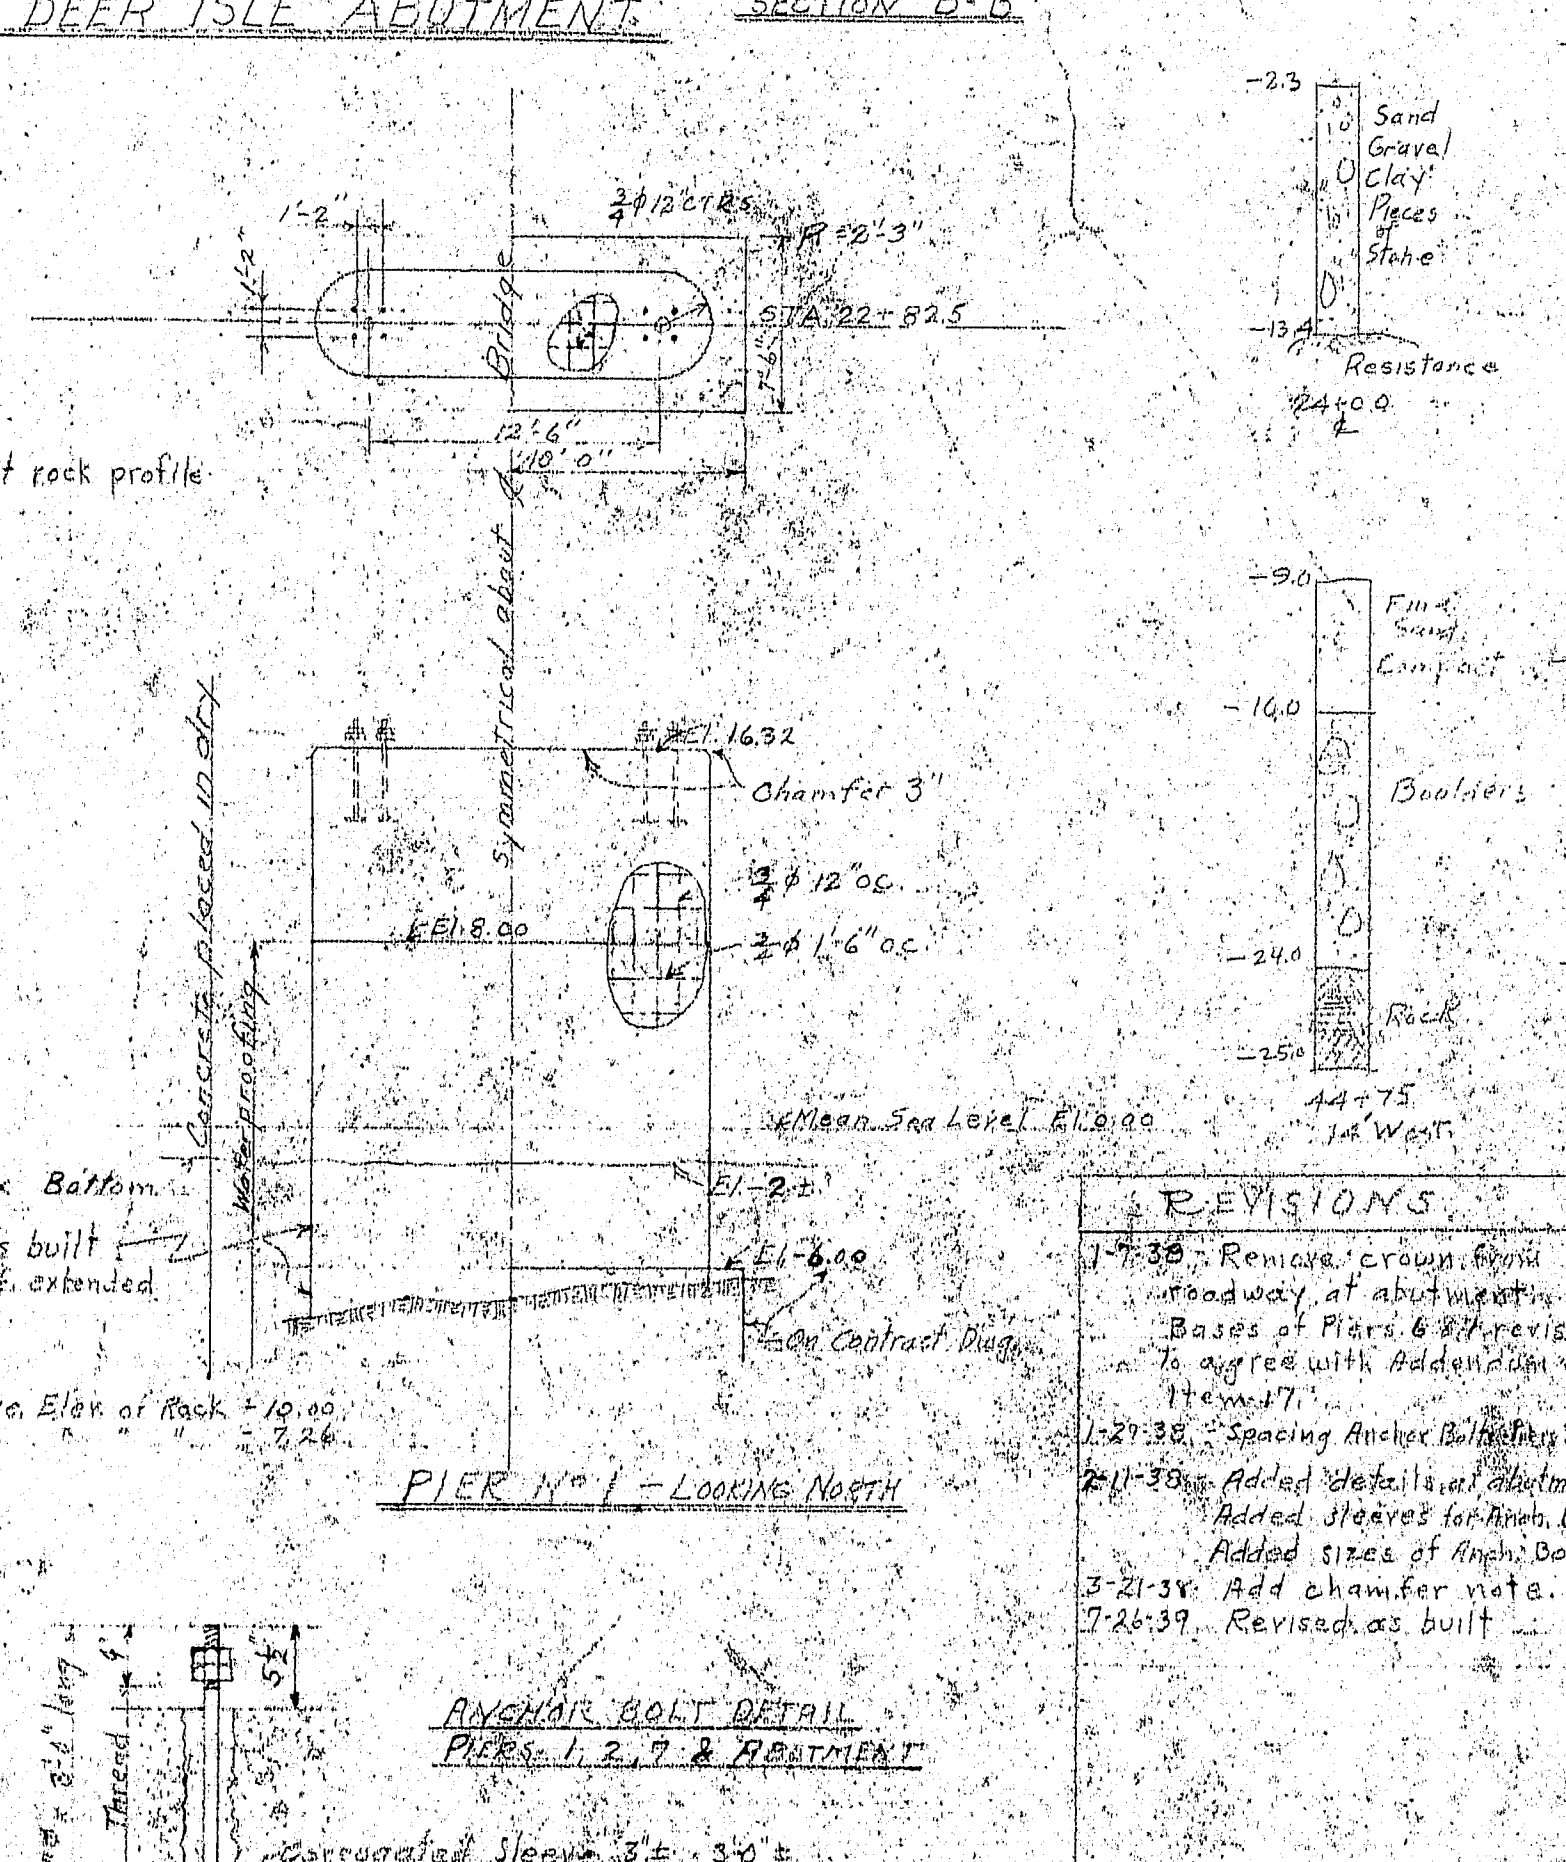 DEER ISLE ABUTMENT
SECTION
-2.3
Sand
Gravel
Clay
Pieces
of
Stone
-13.4
Resistance
24+00
℄
1'-2"
1'-2"
3/4 ϕ 12" CTRS.
R=2'-3"
STA. 22+82.5
7'-6"
12'-6"
10'-0"
rock profile
Symmetrical about ℄ Bridge
-9.0
Fine
Sand
Compact
-16.0
Boulders
-24.0
Rock
-25.0
44+75
14' West
El. 16.32
Chamfer 3"
3/4 ϕ 12" o.c.
El. 8.00
3/4 ϕ 1'-6" o.c.
Concrete placed in dry
Waterproofing
Mean Sea Level El. 0.00
El. -2±
El. -6.00
On Contract Dwg.
Bottom
built
extended
Elev. of Rock -10.00
" " " - 7.26
PIER No 1 - LOOKING NORTH
REVISIONS
1-7-38 - Remove crown from
roadway at abutment.
Bases of Piers 6 & 7 revis
to agree with Addendum
Item 17.
1-27-38 - Spacing Anchor Bolts Piers
2-11-38 - Added details at abutm
Added sleeves for Anch.
Added sizes of Anch. Bo
3-21-38 Add chamfer note.
7-26-39 Revised as built
ANCHOR BOLT DETAIL
PIERS 1, 2, 7 & ABUTMENT
5 1/2"
Thread
long
Corrugated Sleeve 3"± 3'0"±